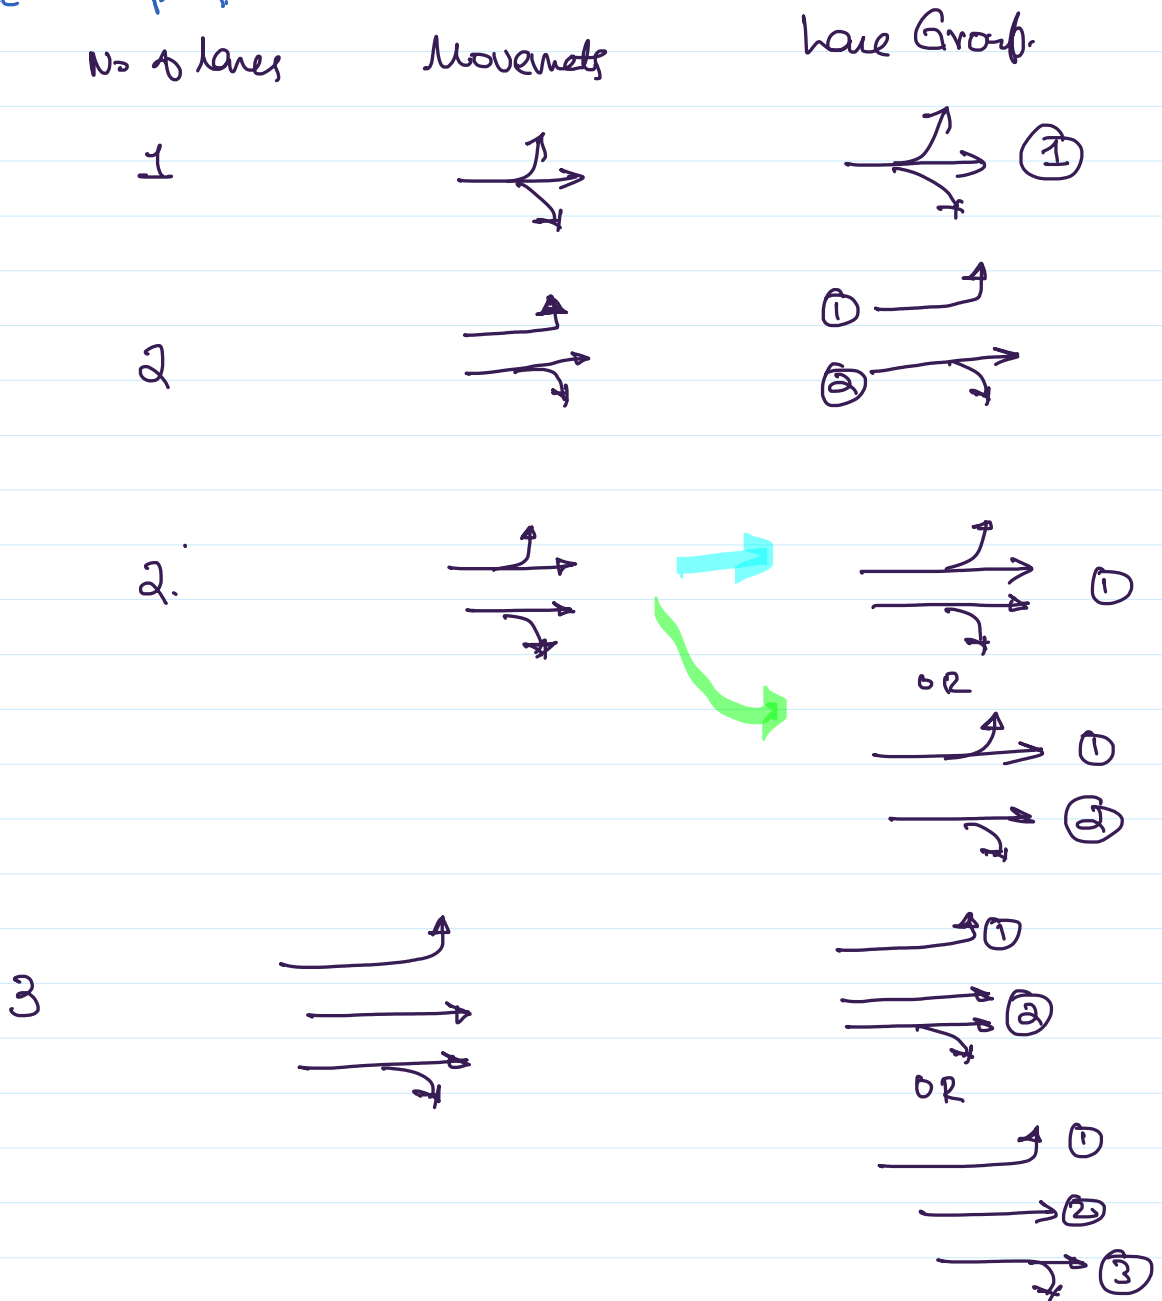 No of lanes Movements Lane Group.
1 1
2 1
2
2. 1
OR
1
2
3 1
2
OR
1
2
3